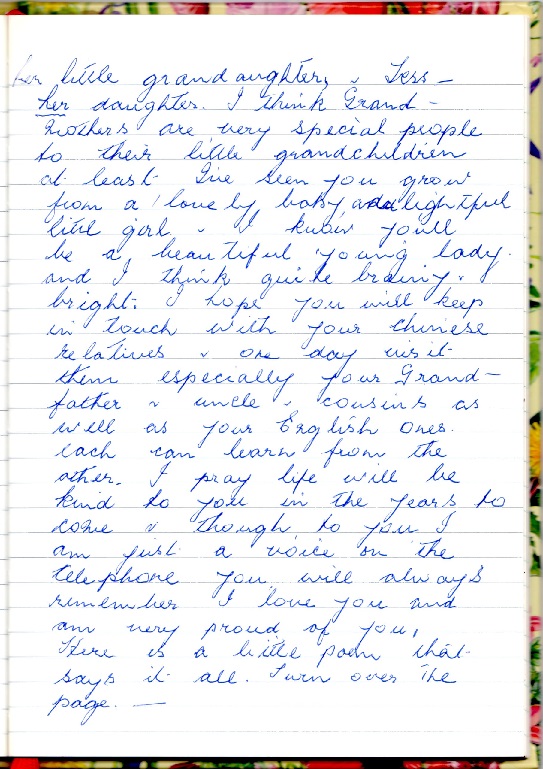 her little granddaughter, & Tess -
her daughter. I think Grand -
Mothers are very special people
to their little grandchildren
at least. I've seen you grow
from a lovely baby, a delightful
little girl & I know you'll
be a beautiful young lady.
and I think quite brainy &
bright. I hope you will keep
in touch with your Chinese
relatives & one day visit
them especially your Grand -
father & uncle & cousins as
well as your English ones.
each can learn from the
other. I pray life will be
kind to you in the years to
come & though to you I
am just a voice on the
telephone you will always
remember I love you and
am very proud of you,
Here is a little poem that
says it all. Turn over the
page. —